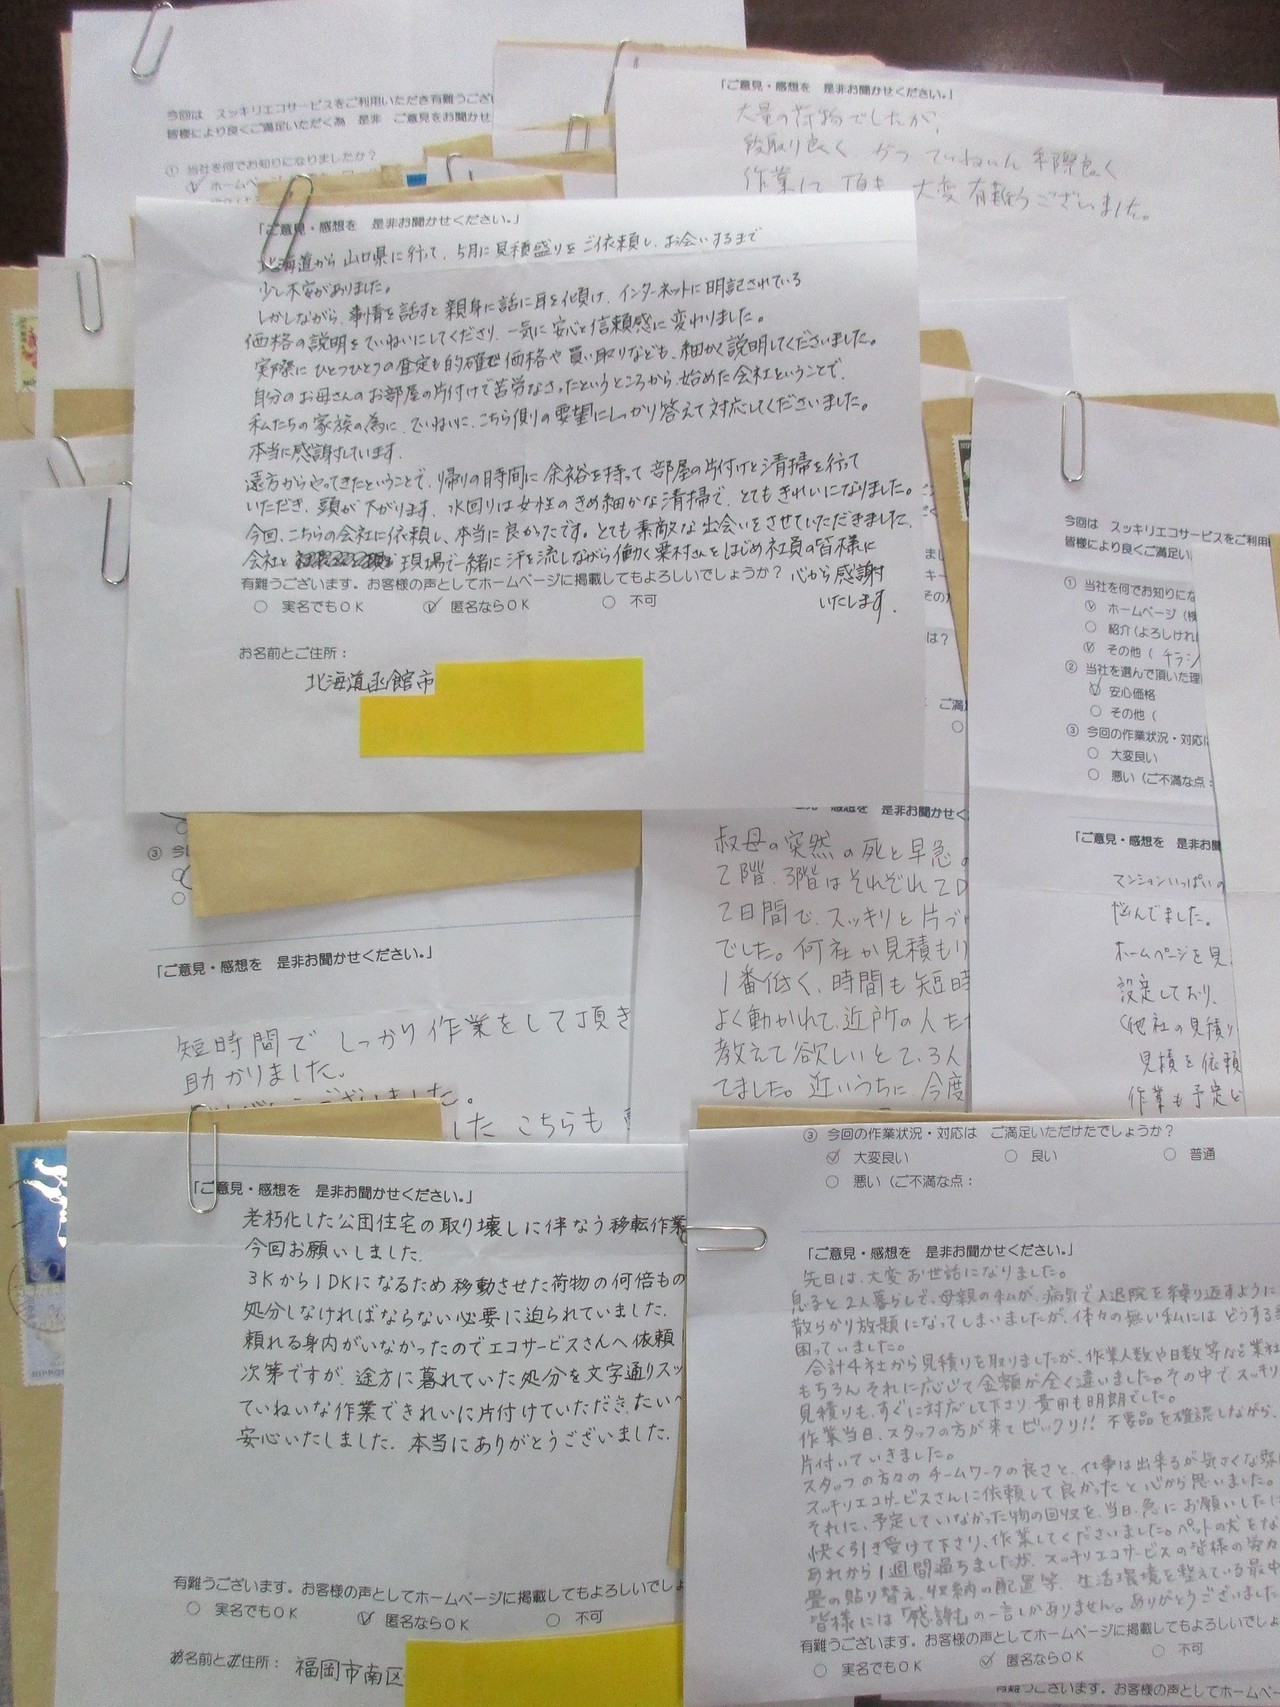 今回は スッキリエコサービスをご利用いただき有難うござい
皆様により良くご満足いただく為 是非 ご意見をお聞かせ
① 当社を何でお知りになりましたか？
ホームページ
「ご意見・感想を 是非お聞かせください。」
大量の荷物でしたが、
段取り良く、かつ ていねいに 手際良く
作業して 頂き 大変 有難うございました。
「ご意見・感想を 是非お聞かせください。」
北海道から山口県に行って、5月に見積盛りをご依頼し、お会いするまで
少し不安がありました。
しかしながら、事情を話すと親身に話に耳を傾け、インターネットに明記されている
価格の説明をていねいにしてくださり、一気に安心と信頼感に変わりました。
実際にひとつひとつの査定も的確で価格や買い取りなども、細かく説明してくださいました。
自分のお母さんのお部屋の片付けで苦労なさったというところから、始めた会社ということで、
私たちの家族の為に、ていねいに、こちら側りの要望にしっかり答えて対応してくださいました。
本当に感謝しています。
遠方からやってきたということで、帰りの時間に余裕を持って部屋の片付けと清掃を行って
いただき、頭が下がります。水回りは女性のきめ細かな清掃で、とてもきれいになりました。
今回、こちらの会社に依頼し、本当に良かったです。とても素敵な出会いをさせていただきました。
会社と 現場で一緒に汗を流しながら働く栗村さんをはじめ社員の皆様に
心から感謝
いたします。
有難うございます。お客様の声としてホームページに掲載してもよろしいでしょうか？
○ 実名でもＯＫ ✓ 匿名ならＯＫ ○ 不可
お名前とご住所：
北海道函館市
今回は スッキリエコサービスをご利用
皆様により良くご満足い
① 当社を何でお知りにな
✓ ホームページ（検
○ 紹介（よろしけれ
✓ その他（ チラシ
② 当社を選んで頂いた理
✓ 安心価格
○ その他（
③ 今回の作業状況・対応に
○ 大変良い
○ 悪い（ご不満な点：
「ご意見・感想を 是非お聞
マンションいっぱいの
悩んでました。
ホームページを見
設定しており、
（他社の見積り
見積を依頼
作業も予定ど
感想を 是非お聞かせく
叔母の突然の死と早急
2階、3階はそれぞれ2D
2日間で、スッキリと片づ
でした。何社か見積もり
1番低く、時間も短時
よく動かれて、近所の人た
教えて欲しいとて、3人
てました。近いうちに、今度
③
「ご意見・感想を 是非お聞かせください。」
短時間で しっかり作業をして頂き
助かりました。
ございました。
した こちらも
「ご意見・感想を 是非お聞かせください。」
老朽化した公団住宅の取り壊しに伴なう移転作業
今回お願いしました。
3Kから1DKになるため移動させた荷物の何倍もの
処分しなければならない必要に迫られていました。
頼れる身内がいなかったのでエコサービスさんへ依頼
次第ですが、途方に暮れていた処分を文字通りスッ
ていねいな作業できれいに片付けていただき、たいへ
安心いたしました。本当にありがとうございました。
有難うございます。お客様の声としてホームページに掲載してもよろしいでしょ
○ 実名でもＯＫ ✓ 匿名ならＯＫ ○ 不可
お名前とご住所： 福岡市南区
③ 今回の作業状況・対応は ご満足いただけたでしょうか？
✓ 大変良い ○ 良い ○ 普通
○ 悪い（ご不満な点：
「ご意見・感想を 是非お聞かせください。」
先日は、大変お世話になりました。
息子と2人暮らしで、母親の私が、病気で入退院を繰り返すように
散らかり放題になってしまいましたが、体力の無い私には どうする
困っていました。
合計4社から見積りを取りましたが、作業人数や日数等など業社
もちろん それに応じて金額が全く違いました。その中でスッキリ
見積りも、すぐに対応して下さり、費用も明朗でした。
作業当日、スタッフの方が来てビックリ!! 不要品を確認しながら、
片付いていきました。
スタッフの方々のチームワークの良さと、仕事は出来るが気さくな
スッキリエコサービスさんに依頼して良かったと心から思いました。
それに、予定していなかった物の回収を、当日、急にお願いしたに
快く引き受けて下さり、作業してくださいました。ペットの犬をな
あれから1週間過ぎましたが、スッキリエコサービスの皆様の労力
畳の貼り替え、収納の配置等、生活環境を整えている最中
皆様には「感謝」の一言しかありません。ありがとうございました
有難うございます。お客様の声としてホームページに掲載してもよろしいでしょ
○ 実名でもＯＫ ✓ 匿名ならＯＫ ○ 不可
有難うございます。お客様の声としてホームペー